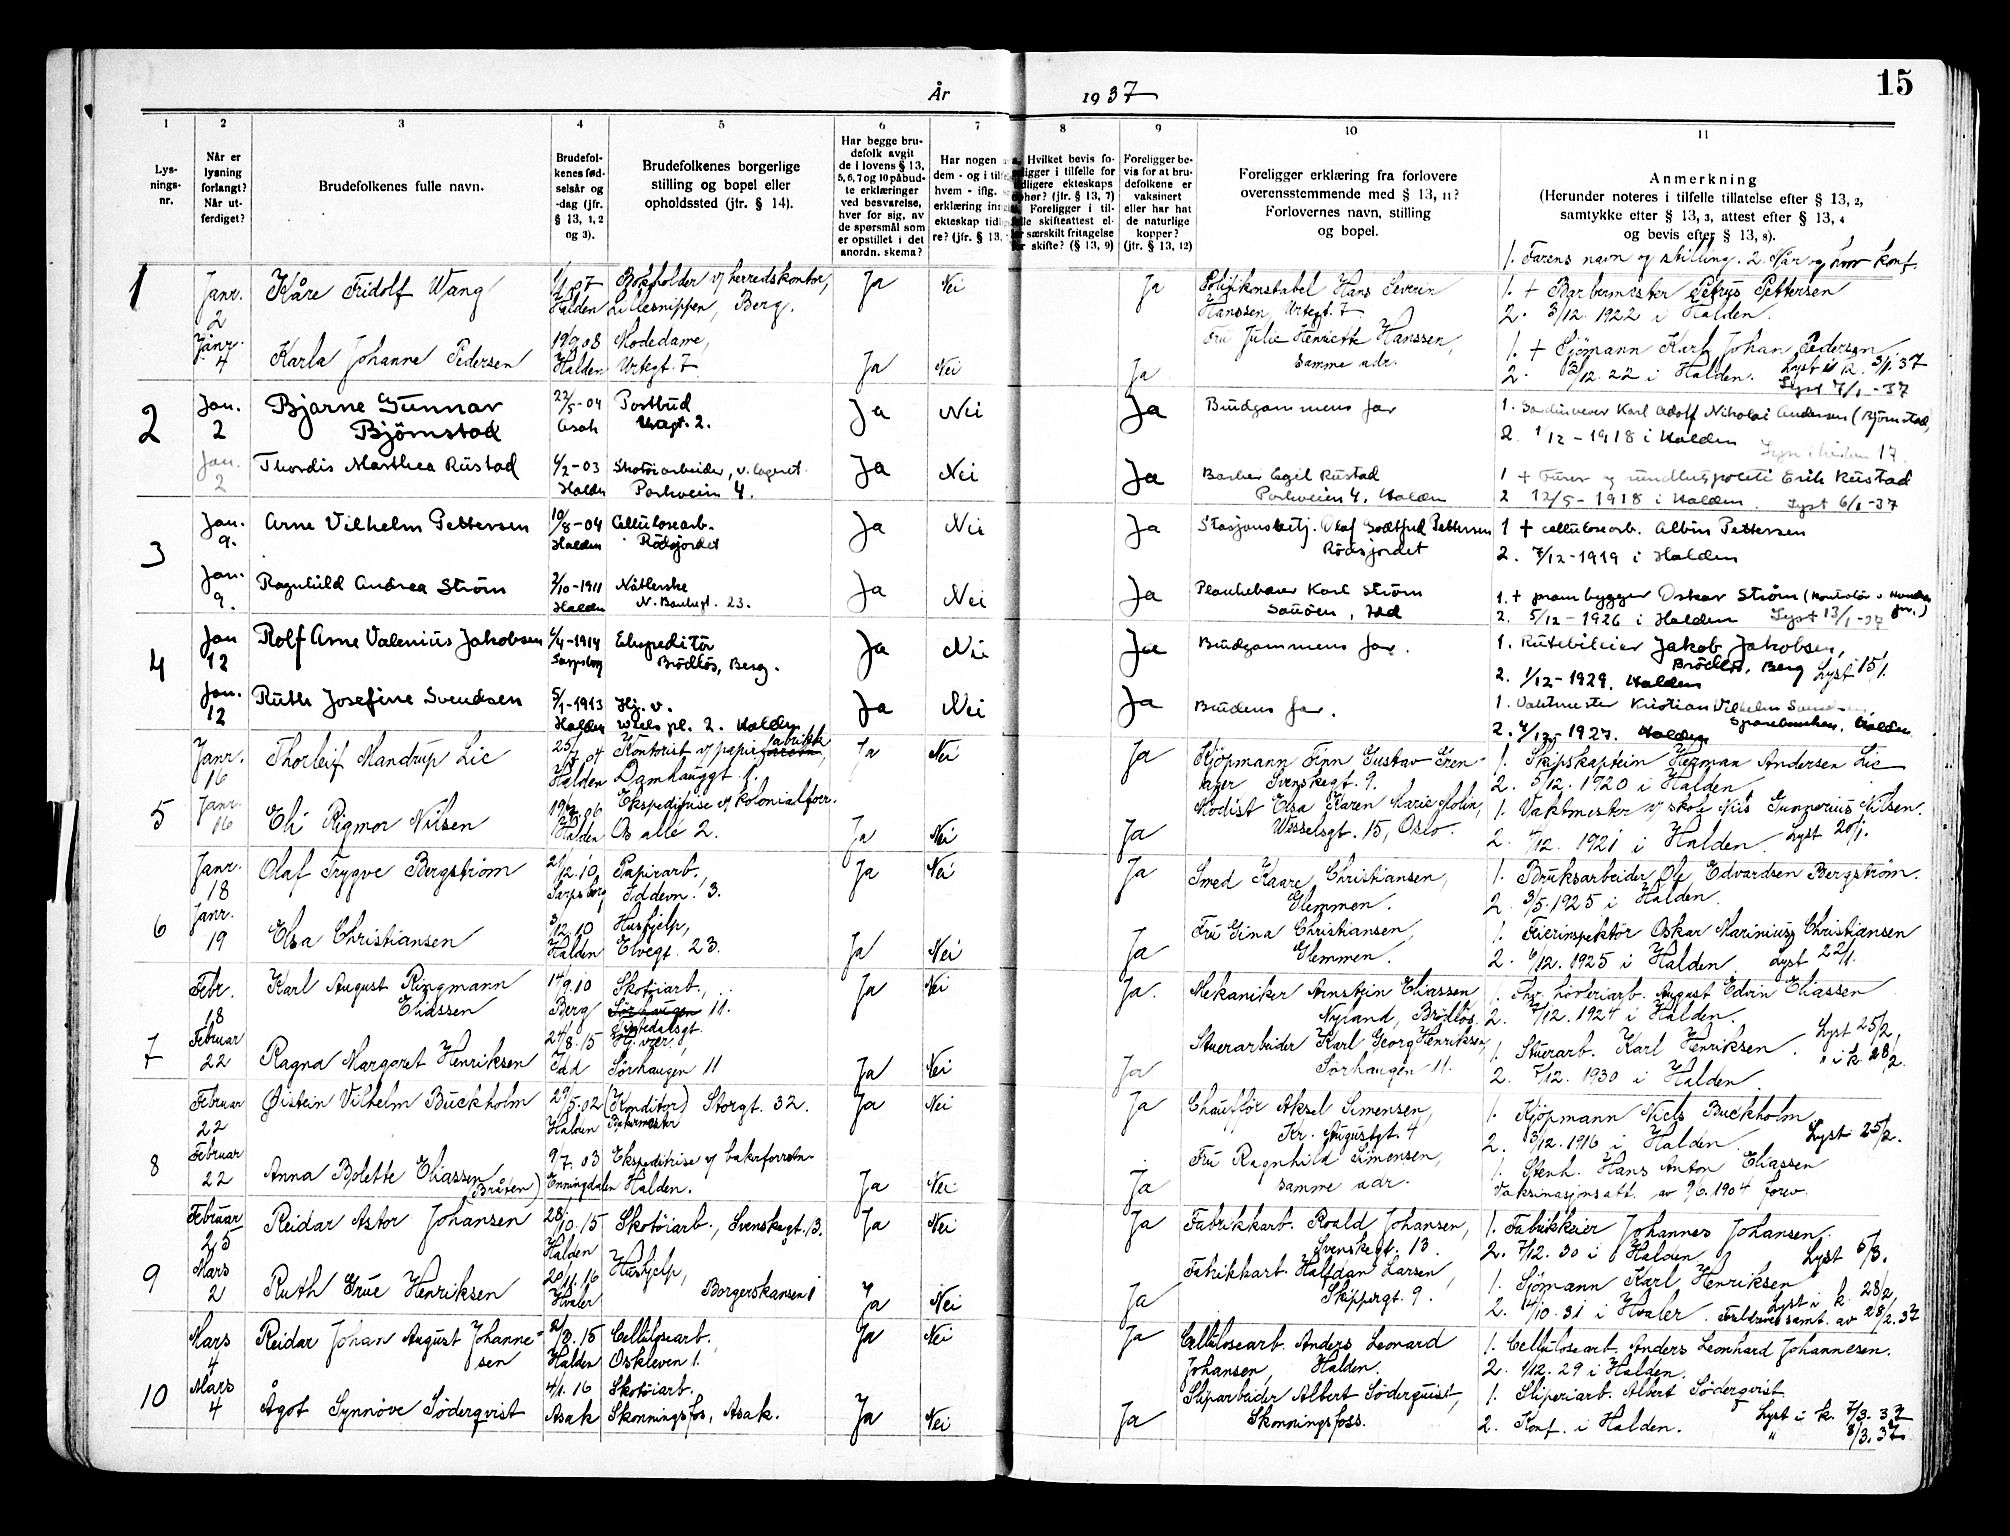 15
År 1937
1 2 3 4 5 6 7 8 9 10 11
Lys-
nings-
nr.
Når er
lysning
forlangt?
Når ut-
ferdiget?
Brudefolkenes fulle navn.
Brudefol-
kenes fød-
selsår og
-dag (jfr.
§ 13, 1, 2
og 3).
Brudefolkenes borgerlige
stilling og bopel eller
opholdssted (jfr. § 14).
Har begge bru-
defolk avgit
de i lovens § 13,
5, 6, 7 og 10 påbud-
te erklæringer
ved besvarelse,
hver for sig, av
de spørsmål som
er opstillet i det
anordn. skema?
Har nogen
dem - og i
hvem - iflg.
erklæring
ekteskap
re? (jfr. § 13,
Hvilket bevis fo-
religger i tilfelle for
tidligere ekteskaps
ophør? (jfr. § 13, 7)
Foreligger i til-
felle skifteattest el-
ler særskilt fritagelse
for skifte? (§ 13, 9)
Foreligger be-
vis for at bru-
defolkene er
vaksinert
eller har hat
de naturlige
kopper?
(jfr. § 13, 12)
Foreligger erklæring fra forlovere
overensstemmende med § 13, 11?
Forlovernes navn, stilling
og bopel.
Anmerkning
(Herunder noteres i tilfelle tillatelse efter § 13, 2,
samtykke efter § 13, 3, attest efter § 13, 4
og bevis efter § 13, 8).
1. Farens navn og stilling. 2. Når og hvor konf.
1
Janr. 2 Kåre Fridolf Wang 1/1 07 Halden Bokholder v/ herredskontor, Lillesnippen, Berg. Ja Nei Ja Politikonstabel Hans Severin
Hanssen, Urtegt. 7. 1. + Barbermester Petrus Pettersen
2. 3/12. 1922 i Halden.
Janr. 4 Karla Johanne Pedersen 19/9 08 Halden Modedame, Urtegt. 7 Ja Nei Ja Fru Julie Henriette Hanssen,
samme adr. 1. + Sjømann Karl Johan Pedersen
2. 3/12. 22 i Halden. Lyst i k. 3/1. 37
Lyst 7/1 -37
2
Jan. 2 Bjarne Gunnar Bjørnstad 22/5-04 Asak Postbud Urtegt. 2. Ja Nei Ja Brudgommens far 1. Sardinvever Karl Adolf Nikolai Andersen (Bjørnstad)
2. 1/12-1918 i Halden
Jan. 2 Thordis Marthea Rustad 4/2-03 Halden Skotøiarbeider, v. lageret. Parkveien 4. Ja Nei Ja Barber Egil Rustad
Parkveien 4, Halden 1 + Furer og rundhuspoliti Erik Rustad
2 12/5-1918 i Halden. Lyst 6/1-37
3
Jan. 9. Arne Vilhelm Pettersen 10/8-04 Halden Cellulosearb. Rødsjordet Ja Nei Ja Stasjonsbetj. Olaf Godtfred Pettersen
Rødsjordet 1 + cellulosearb. Albin Pettersen
2. 7/12-1919 i Halden
Jan. 9. Ragnhild Andrea Strøm 2/10-1911 Halden Nåtlerske N. Bankegt. 23. Ja Nei Ja Plankebærer Karl Strøm
Sauøen, Idd 1. + prambygger Oskar Strøm
2. 5/12-1926 i Halden Lyst 13/1-37
4
Jan 12 Rolf Arne Valenius Jakobsen 4/4-1914 Sarpsborg Ekspeditør Brødløs, Berg. Ja Nei Ja Brudgommens far. 1. Rutebileier Jakob Jakobsen,
Brødløs, Berg
2. 1/12-1929. Halden Lyst 15/1.
Jan. 12 Ruth Josefine Svendsen 5/1-1913 Halden Hj. v. Wiels pl. 2. Halden Ja Nei Ja Brudens far. 1. Vaktmester Kristian Vilhelm Svendsen,
Sparebanken, Halden
2. 4/12-1927. Halden
5
Janr. 16 Thorleif Mandrup Lie 25/7 04 Halden Kontorist v/ papirfabrikk, Damhauggt. 1. Ja Nei Ja Kjøpmann Finn Gustav Gren-
ager Svenskegt. 9. 1. Skipskaptein Herman Andersen Lie
2. 5/12. 1920 i Halden.
Janr. 16 Eli Rigmor Nilsen 19/2 06 Halden Ekspeditrise v/ kolonialforr. Os allé 2. Ja Nei Ja Modist Elsa Karen Marie Molin,
Wesselsgt. 15, Oslo. 1. Vaktmester v/ skole Nils Gunnerius Nilsen.
2. 4/12. 1921 i Halden. Lyst 20/1.
6
Janr. 18 Olaf Trygve Bergstrøm 21/12.10 Sarpsborg Papirarb., Iddevn. 3. Ja Nei Ja Smed Kaare Christiansen,
Glemmen. 1. Bruksarbeider Ole Edvardsen Bergstrøm.
2. 3/5. 1925 i Halden.
Janr. 19 Elsa Christiansen 3/12.10 Halden Hushjelp, Elvegt. 23. Ja Nei Ja Fru Gina Christiansen,
Glemmen. 1. Feierinspektør Oskar Marinius Christiansen
2. 6/12. 1925 i Halden. Lyst 22/1.
7
Febr. 18 Karl August Ringmann Eliassen 14/9.10 Berg Skotøiarb., Sørhaugen 11. Tistedalsgt. Ja Nei Ja. Mekaniker Arnstein Eliassen
Nyland, Brødløs. 1. Fhv. høvleriarb. August Edvin Eliassen
2. 7/12. 1924 i Halden.
Februar 22 Ragna Margaret Henriksen 24/8.15 Idd Hj. vær., Sørhaugen 11 Ja Nei Ja Stuerarbeider Karl Georg Henriksen,
Sørhaugen 11. 1. Stuerarb. Karl Henriksen. Lyst 25/2,
2. 7/12. 1930 i Halden. " i k 28/2.
8
Februar 22 Øistein Vilhelm Buckholm 29/5.02 Halden (Konditor) Storgt. 32. Bakermester Ja Nei Ja Chauffør Aksel Simensen,
Kr. Augustgt. 4 1. Kjøpmann Niels Buckholm
2. 3/12. 1916 i Halden. Lyst 25/2.
Februar 22 Anna Bolette Eliassen (Bråten) 9/7. 03 Enningdalen Ekspeditrise v/ bakerforretn. Halden. Ja Nei Ja Fru Ragnhild Simensen,
samme adr. 1. Stenh. Hans Anton Eliassen
Vaksinasjonsatt. av 9/6.1904 forev.
9
Februar 25 Reidar Astor Johansen 28/10.15 Halden Skotøiarb., Svenskegt. 13. Ja Nei Ja Fabrikkarb. Roald Johansen,
Svenskegt. 13. 1. Fabrikkeier Johannes Johansen.
2. 7/12. 30 i Halden Lyst 5/3.
Mars 2 Ruth Grue Henriksen 20/11.16 Hvaler Hushjelp, Borgerskansen 1 Ja Nei Ja Fabrikkarb. Halfdan Larsen,
Skippergt. 9. 1. Sjømann Karl Henriksen Lyst i k. 28/2,
2. 4/10. 31 i Hvaler. Foreldres samt. av 28/2.37
10
Mars 4 Reidar Johan August Johanne-sen 2/8.15 Halden Cellulosearb., Oskleven 1. Ja Nei Ja Cellulosearb. Anders Leonard
Johansen, Halden. 1. Cellulosearb. Anders Leonhard Johannesen.
2. 1/12. 29 i Halden.
Mars 4 Ågot Synnøve Söderqvist 4/1. 16 Asak Skotøiarb. Skonningsfos, Asak. Ja Nei Ja Sliparbeider Albert Söderquist,
Skonningsfoss. 1. Sliperiarb. Albert Söderqvist
2. Konf. i Halden. Lyst i k. 7/3. 37
" 8/3. 37.